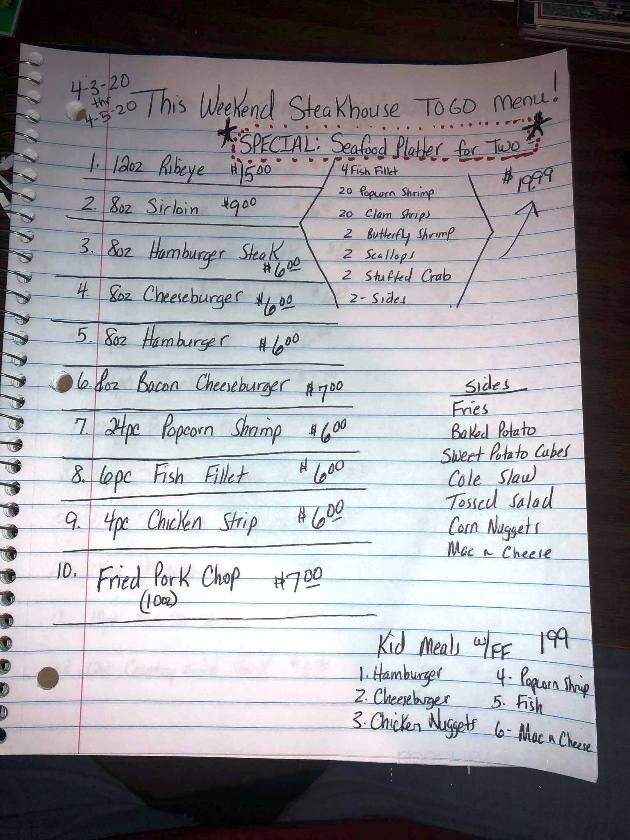 4-3-20
thr
4-5-20
This Weekend Steakhouse TOGO Menu!
SPECIAL: Seafood Platter for Two
$19.99
4 Fish Fillet
20 Popcorn Shrimp
20 Clam Strips
2 Butterfly Shrimp
2 Scallops
2 Stuffed Crab
2- Sides
1. 12oz Ribeye $15.00
2. 8oz Sirloin $9.00
3. 8oz Hamburger Steak
$6.00
4. 8oz Cheeseburger $6.00
5. 8oz Hamburger $6.00
6. 8oz Bacon Cheeseburger $7.00
7. 24pc Popcorn Shrimp $6.00
8. 6pc Fish Fillet $6.00
9. 4pc Chicken Strip $6.00
10. Fried Pork Chop $7.00
(10oz)
Sides
Fries
Baked Potato
Sweet Potato Cubes
Cole Slaw
Tossed Salad
Corn Nuggets
Mac n Cheese
Kid Meals w/FF 1.99
1. Hamburger
2. Cheeseburger
3. Chicken Nuggets
4- Popcorn Shrimp
5. Fish
6- Mac n Cheese